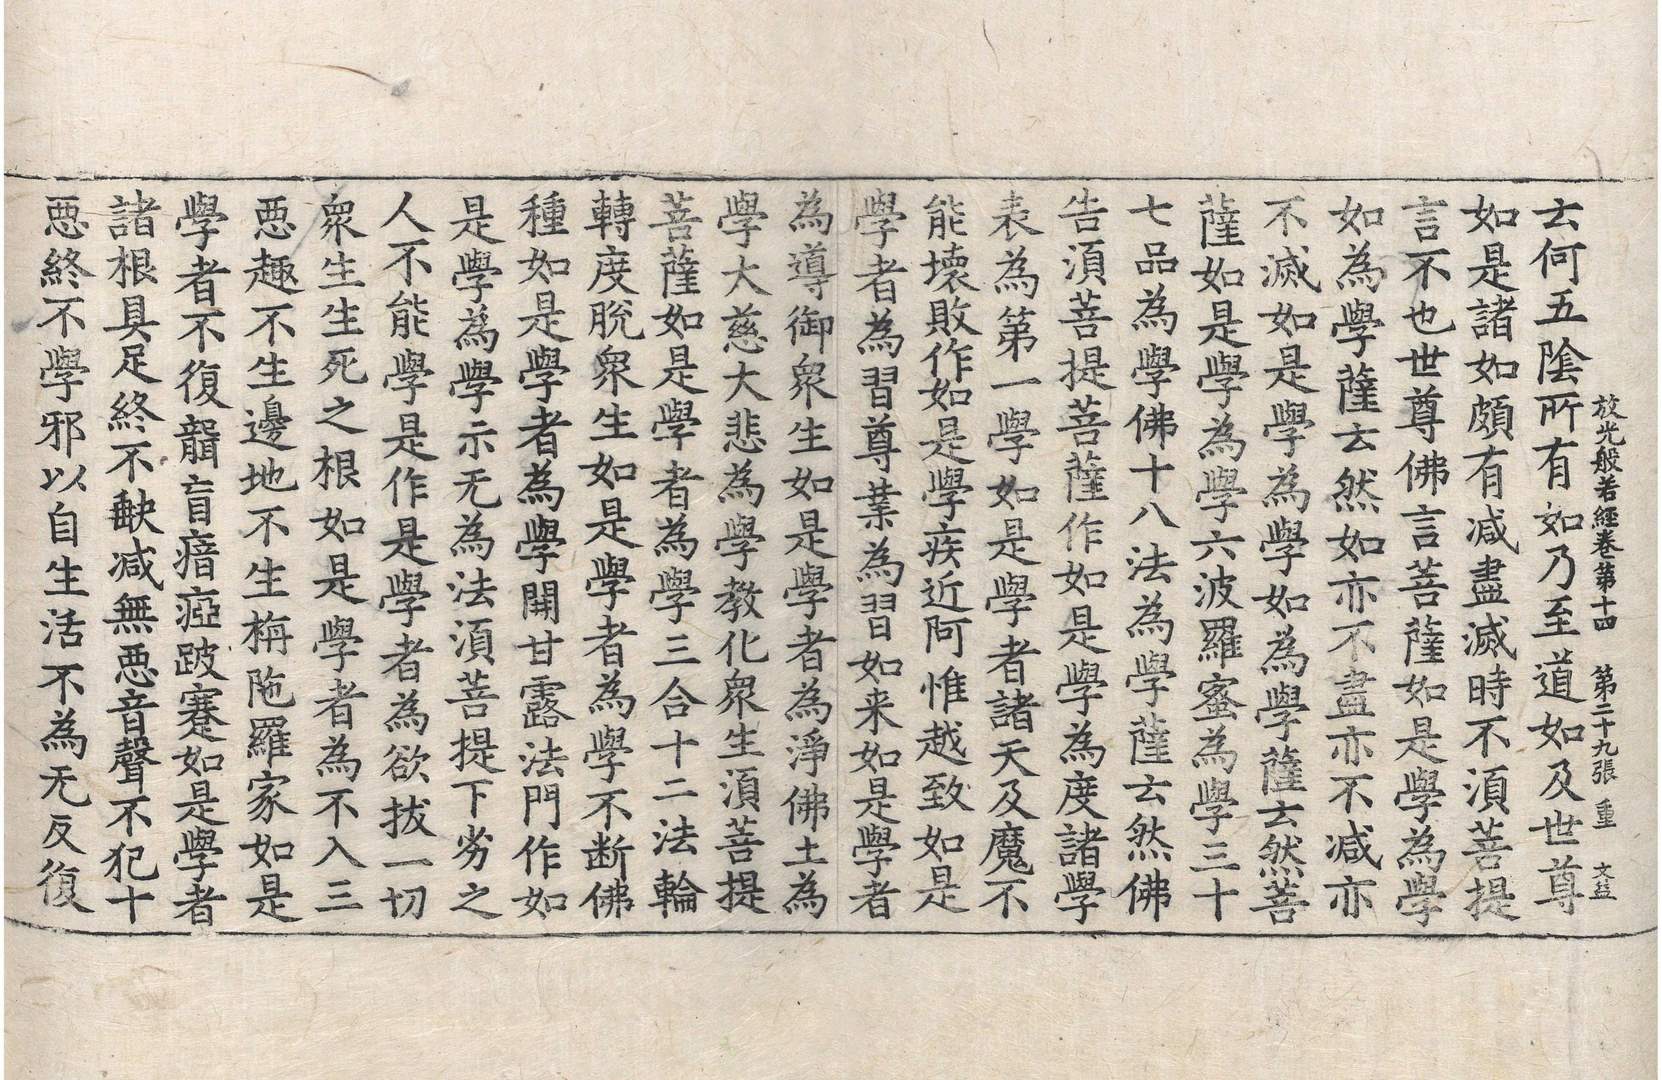 放光般若經卷第十四　第二十九張　重　文益
云何五陰所有如乃至道如及世尊
如是諸如頗有減盡滅時不須菩提
言不也世尊佛言菩薩如是學為學
如為學薩云然如亦不盡亦不減亦
不滅如是學為學如為學薩云然菩
薩如是學為學六波羅蜜為學三十
七品為學佛十八法為學薩云然佛
告須菩提菩薩作如是學為度諸學
表為第一學如是學者諸天及魔不
能壞敗作如是學疾近阿惟越致如是
學者為習尊業為習如来如是學者
為導御衆生如是學者為淨佛土為
學大慈大悲為學教化衆生須菩提
菩薩如是學者為學三合十二法輪
轉度脫衆生如是學者為學不断佛
種如是學者為學開甘露法門作如
是學為學示无為法須菩提下劣之
人不能學是作是學者為欲拔一切
衆生生死之根如是學者為不入三
惡趣不生邊地不生栴陁羅家如是
學者不復聾盲瘖瘂跛蹇如是學者
諸根具足終不缺减無惡音聲不犯十
惡終不學邪以自生活不為无反復